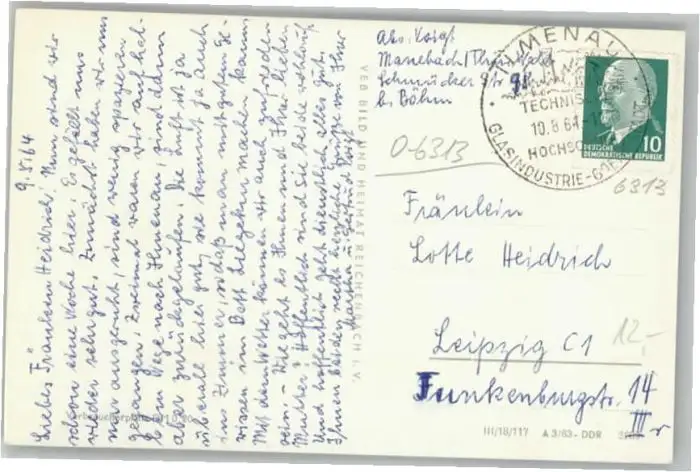 9.8.64
Liebes Fräulein Heidrich! Nun sind wir
schon eine Woche hier. Es gefällt uns
wieder sehr gut. Zunächst haben wir uns
nur ausgeruht, sind wenig spazieren
gegangen. Zweimal waren wir auf hal-
bem Wege nach Ilmenau, sind dann
aber zurückgelaufen. Die Luft ist ja
überall hier gut, sie kommt ja auch
ins Zimmer, sodaß man mit gutem Ge-
wissen im Bett Liegekur machen kann.
Mit dem Wetter können wir auch zufrieden
sein. – Wie geht es Ihnen und Ihrer lieben
Mutter? Hoffentlich sind Sie beide wohlauf
Und hoffentlich geht dienstlich alles gut.
Ihnen beiden recht herzliche Grüße von Ihrer
VEB BILD UND HEIMAT REICHENBACH i. V.
Abs. Voigt
Manebach/Thür. Wald
Schmücker Str. 9
b. Böhm
ILMENAU
10.8.64
GLASINDUSTRIE
10
DEUTSCHE
DEMOKRATISCHE REPUBLIK
O-6313
6313
Fräulein
Lotte Heidrich
Leipzig C1
Funkenburgstr. 14
III r
12,-
III/18/117 A 3/63 - DDR